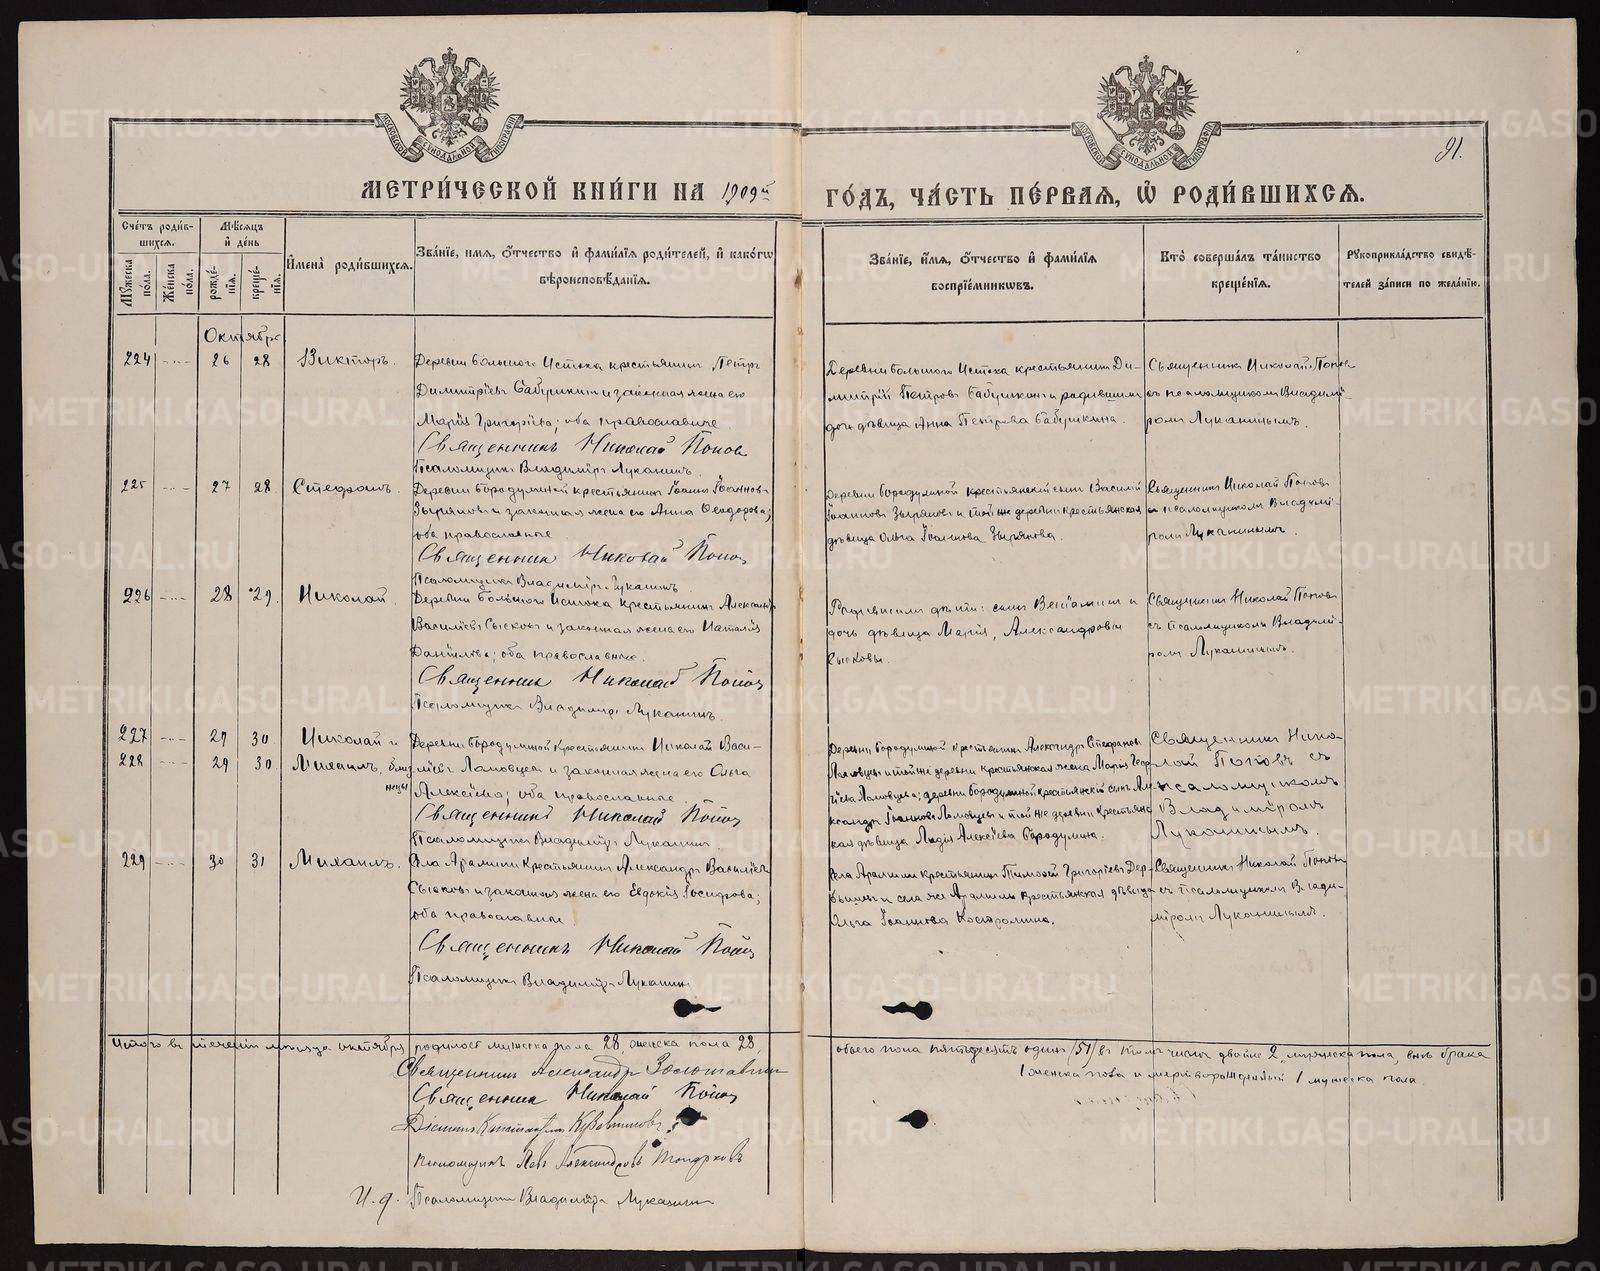 91.
МЕТРИ́ЧЕСКОЙ КНИ́ГИ НА 1909й ГО́ДЪ, ЧА́СТЬ ПЕ́РВАЯ, Ѡ РОДИ́ВШИХСЯ.
МОСКОВСКОЙ СѴНОДАЛЬНОЙ ТИПОГРАФІИ
МОСКОВСКОЙ СѴНОДАЛЬНОЙ ТИПОГРАФІИ
Сче́тъ роди́в-
шихся.
Му́жеска по́ла.
Же́нска по́ла.
Мѣ́сяцъ
и҆ де́нь
рожде́-
нїя.
креще́-
нїя.
И҆мена̀ роди́вшихся.
Зва́нїе, и́мя, ѻ҆́тчество и҆ фами́лїя роди́телей, и҆ како́гѡ
вѣроисповѣ́данїя.
Зва́нїе, и҆́мя, ѻ҆́тчество и҆ фами́лїя
воспрїе́мникѡвъ.
Кто̀ соверша́лъ та́инство
креще́нїя.
Рꙋкоприкла́дство свидѣ́-
телей за́писи по жела́нїю.
Октября
224 26 28 Викторъ.
Деревни Большого Истока крестьянинъ Петръ
Димитріевъ Бабушкинъ и законная жена его
Марія Григоріева; оба православные.
Священникъ Николай Попов
Псаломщикъ Владиміръ Луканинъ.
Деревни Большого Истока крестьянинъ Ди-
митрій Петровъ Бабушкинъ и родившим
дочь дѣвица Анна Петрова Бабушкина.
Священникъ Николай Попов
съ псаломщикомъ Владимі-
ромъ Луканинымъ.
225 27 28 Стефанъ.
Деревни Бородулиной крестьянинъ Іоаннъ Іоанновъ
Зыряновъ и законная жена его Анна Ѳеодорова;
оба православные
Священникъ Николай Попов
Псаломщикъ Владиміръ Луканинъ.
Деревни Бородулиной крестьянскій сынъ Василій
Іоанновъ Зыряновъ и той же деревни крестьянская
дѣвица Ольга Іоаннова Зырянова.
Священникъ Николай Попов
съ псаломщикомъ Владимі-
ромъ Луканинымъ.
226 28 29. Николай.
Деревни Большого Истока крестьянинъ Александръ
Василіевъ Сысковъ и законная жена его Наталія
Даніилова; оба православные.
Священникъ Николай Попов
Псаломщикъ Владиміръ Луканинъ.
Родившими дѣти: сынъ Веніаминъ и
дочь дѣвица Марія, Александровы
Сысковы.
Священникъ Николай Попов
съ псаломщикомъ Владимі-
ромъ Луканинымъ.
227 29 30 Николай и
228 29 30 Михаилъ, близ
нецы
Деревни Бородулиной крестьянинъ Николай Васи-
ліевъ Ломовцевъ и законная жена его Ольга
Алексіева; оба православные.
Священникъ Николай Попов
Псаломщикъ Владиміръ Луканинъ.
Деревни Бородулиной крестьянинъ Александръ Стефановъ
Ломовцевъ и той же деревни крестьянская жена Марія Геор-
гіева Ломовцева; деревни Бородулиной крестьянскій сынъ Але-
ксандръ Іоанновъ Ломовцевъ и той же деревни крестьянс
кая дѣвица Лидія Алексіева Бородулина.
Священникъ Нико-
лай Поповъ съ
псаломщикомъ
Владиміромъ
Луканинымъ.
229 30 31 Михаилъ.
Села Арамили крестьянинъ Александръ Василіевъ
Сысковъ и законная жена его Евдокія Іосифова;
оба православные
Священникъ Николай Попов
Псаломщикъ Владиміръ Луканинъ
Села Арамили крестьянинъ Тимофей Григоріевъ Дер-
и села же Арамили крестьянская дѣвица
Ольга Іоаннова Костромина.
Священникъ Николай Попов
съ псаломщикомъ Влади-
міромъ Луканинымъ.
Итого въ теченіи мѣсяца октября родилось мужеска пола 28, женска пола 23,
обоего пола пятьдесятъ одинъ /51/ въ томъ числѣ двойни 2 мужеска пола, внѣ брака
1 женска пола и мертворожденный 1 мужеска пола.
Священникъ Александръ
Священникъ Николай Попов
Діаконъ
Псаломщикъ Левъ Александровъ
И. д. Псаломщика Владиміръ Луканинъ
METRIKI.GASO-URAL.RU